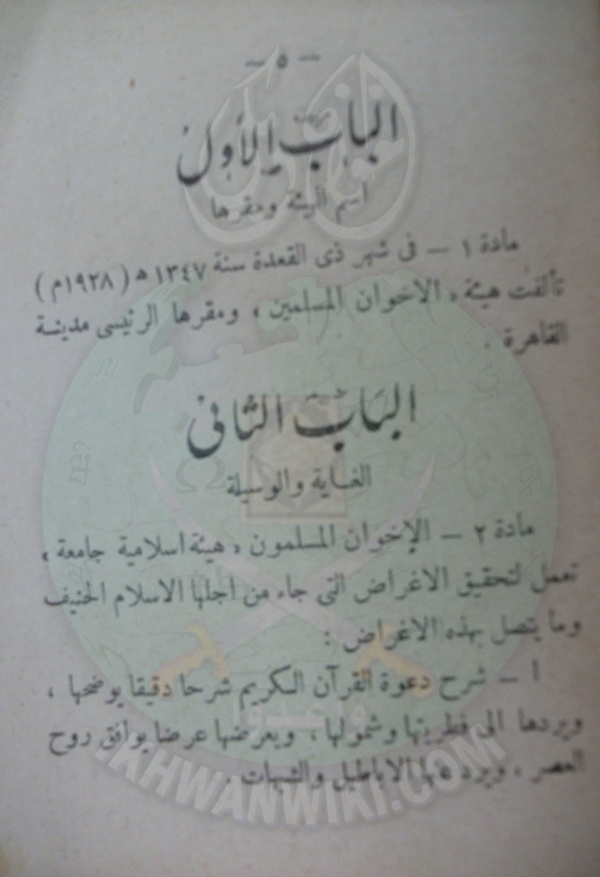 — ٥ —
الباب الأول
اسم الهيئة ومقرها
مادة ١ — فى شهر ذى القعدة سنة ١٣٤٧ ه (١٩٢٨م)
تألفت هيئة « الاخوان المسلمين » ومقرها الرئيسى مدينة
القاهرة .
الباب الثانى
الغاية والوسيلة
مادة ٢ — الإخوان المسلمون « هيئة اسلامية جامعة »
تعمل لتحقيق الاغراض التى جاء من اجلها الاسلام الحنيف
وما يتصل بهذه الاغراض :
أ — شرح دعوة القرآن الكريم شرحا دقيقا يوضحها ،
ويردها الى فطريتها وشمولها ، ويعرضها عرضا يوافق روح
العصر ، ويرد عنها الاباطيل والشبهات
وأعدوا
IKHWANWIKI.COM